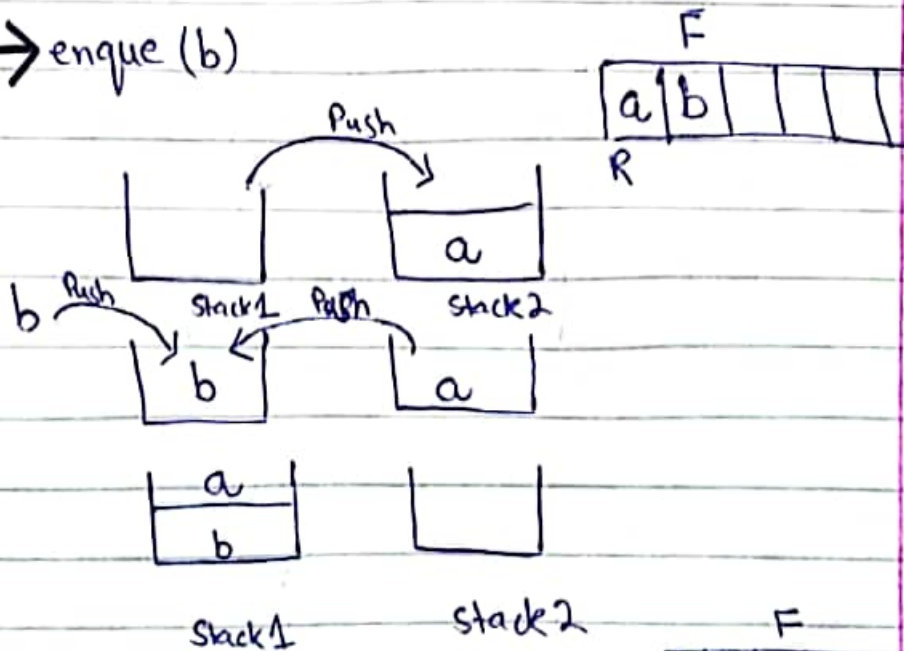 → enque (b)
F
a b
R
Push
a
Stack1 Stack2
b Push Push
b a
a
b
Stack1 Stack2
F